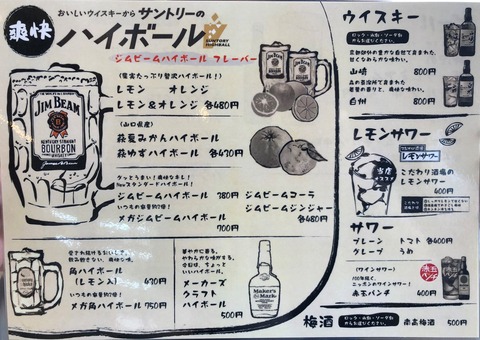 爽快
おいしいウイスキーから サントリーの
ハイボール
SUNTORY HIGHBALL
ジムビームハイボール フレーバー
(果実たっぷり贅沢ハイボール!)
レモン オレンジ
レモン&オレンジ 各480円
(山口県産)
萩夏みかんハイボール
萩ゆずハイボール 各430円
JIM BEAM
KENTUCKY STRAIGHT
BOURBON
WHISKEY
グッとうまい!爽快なキレ!
Newスタンダードハイボール!
ジムビームハイボール 380円
いつもの容量約2倍!
メガジムビームハイボール
700円
ジムビームコーラ
ジムビームジンジャー
各480円
角ハイボール
(レモン入) 430円
いつもの容量約2倍!
メガ角ハイボール 750円
華やかに香る。
メーカーズ
クラフト
ハイボール 500円
Maker's Mark
ウイスキー
ロック・水割・ソーダ割
からお選びください。
山崎 800円
白州 800円
レモンサワー
レモンサワー
当店
こだわり酒場の
レモンサワー
400円
サワー
プレーン トマト 各400円
グレープ うめ
(ワインサワー)
ニッポンのワインサワー!
赤玉パンチ 400円
赤玉パンチ
梅酒
ロック・水割・ソーダ割
からお選びください。
南高梅酒 500円